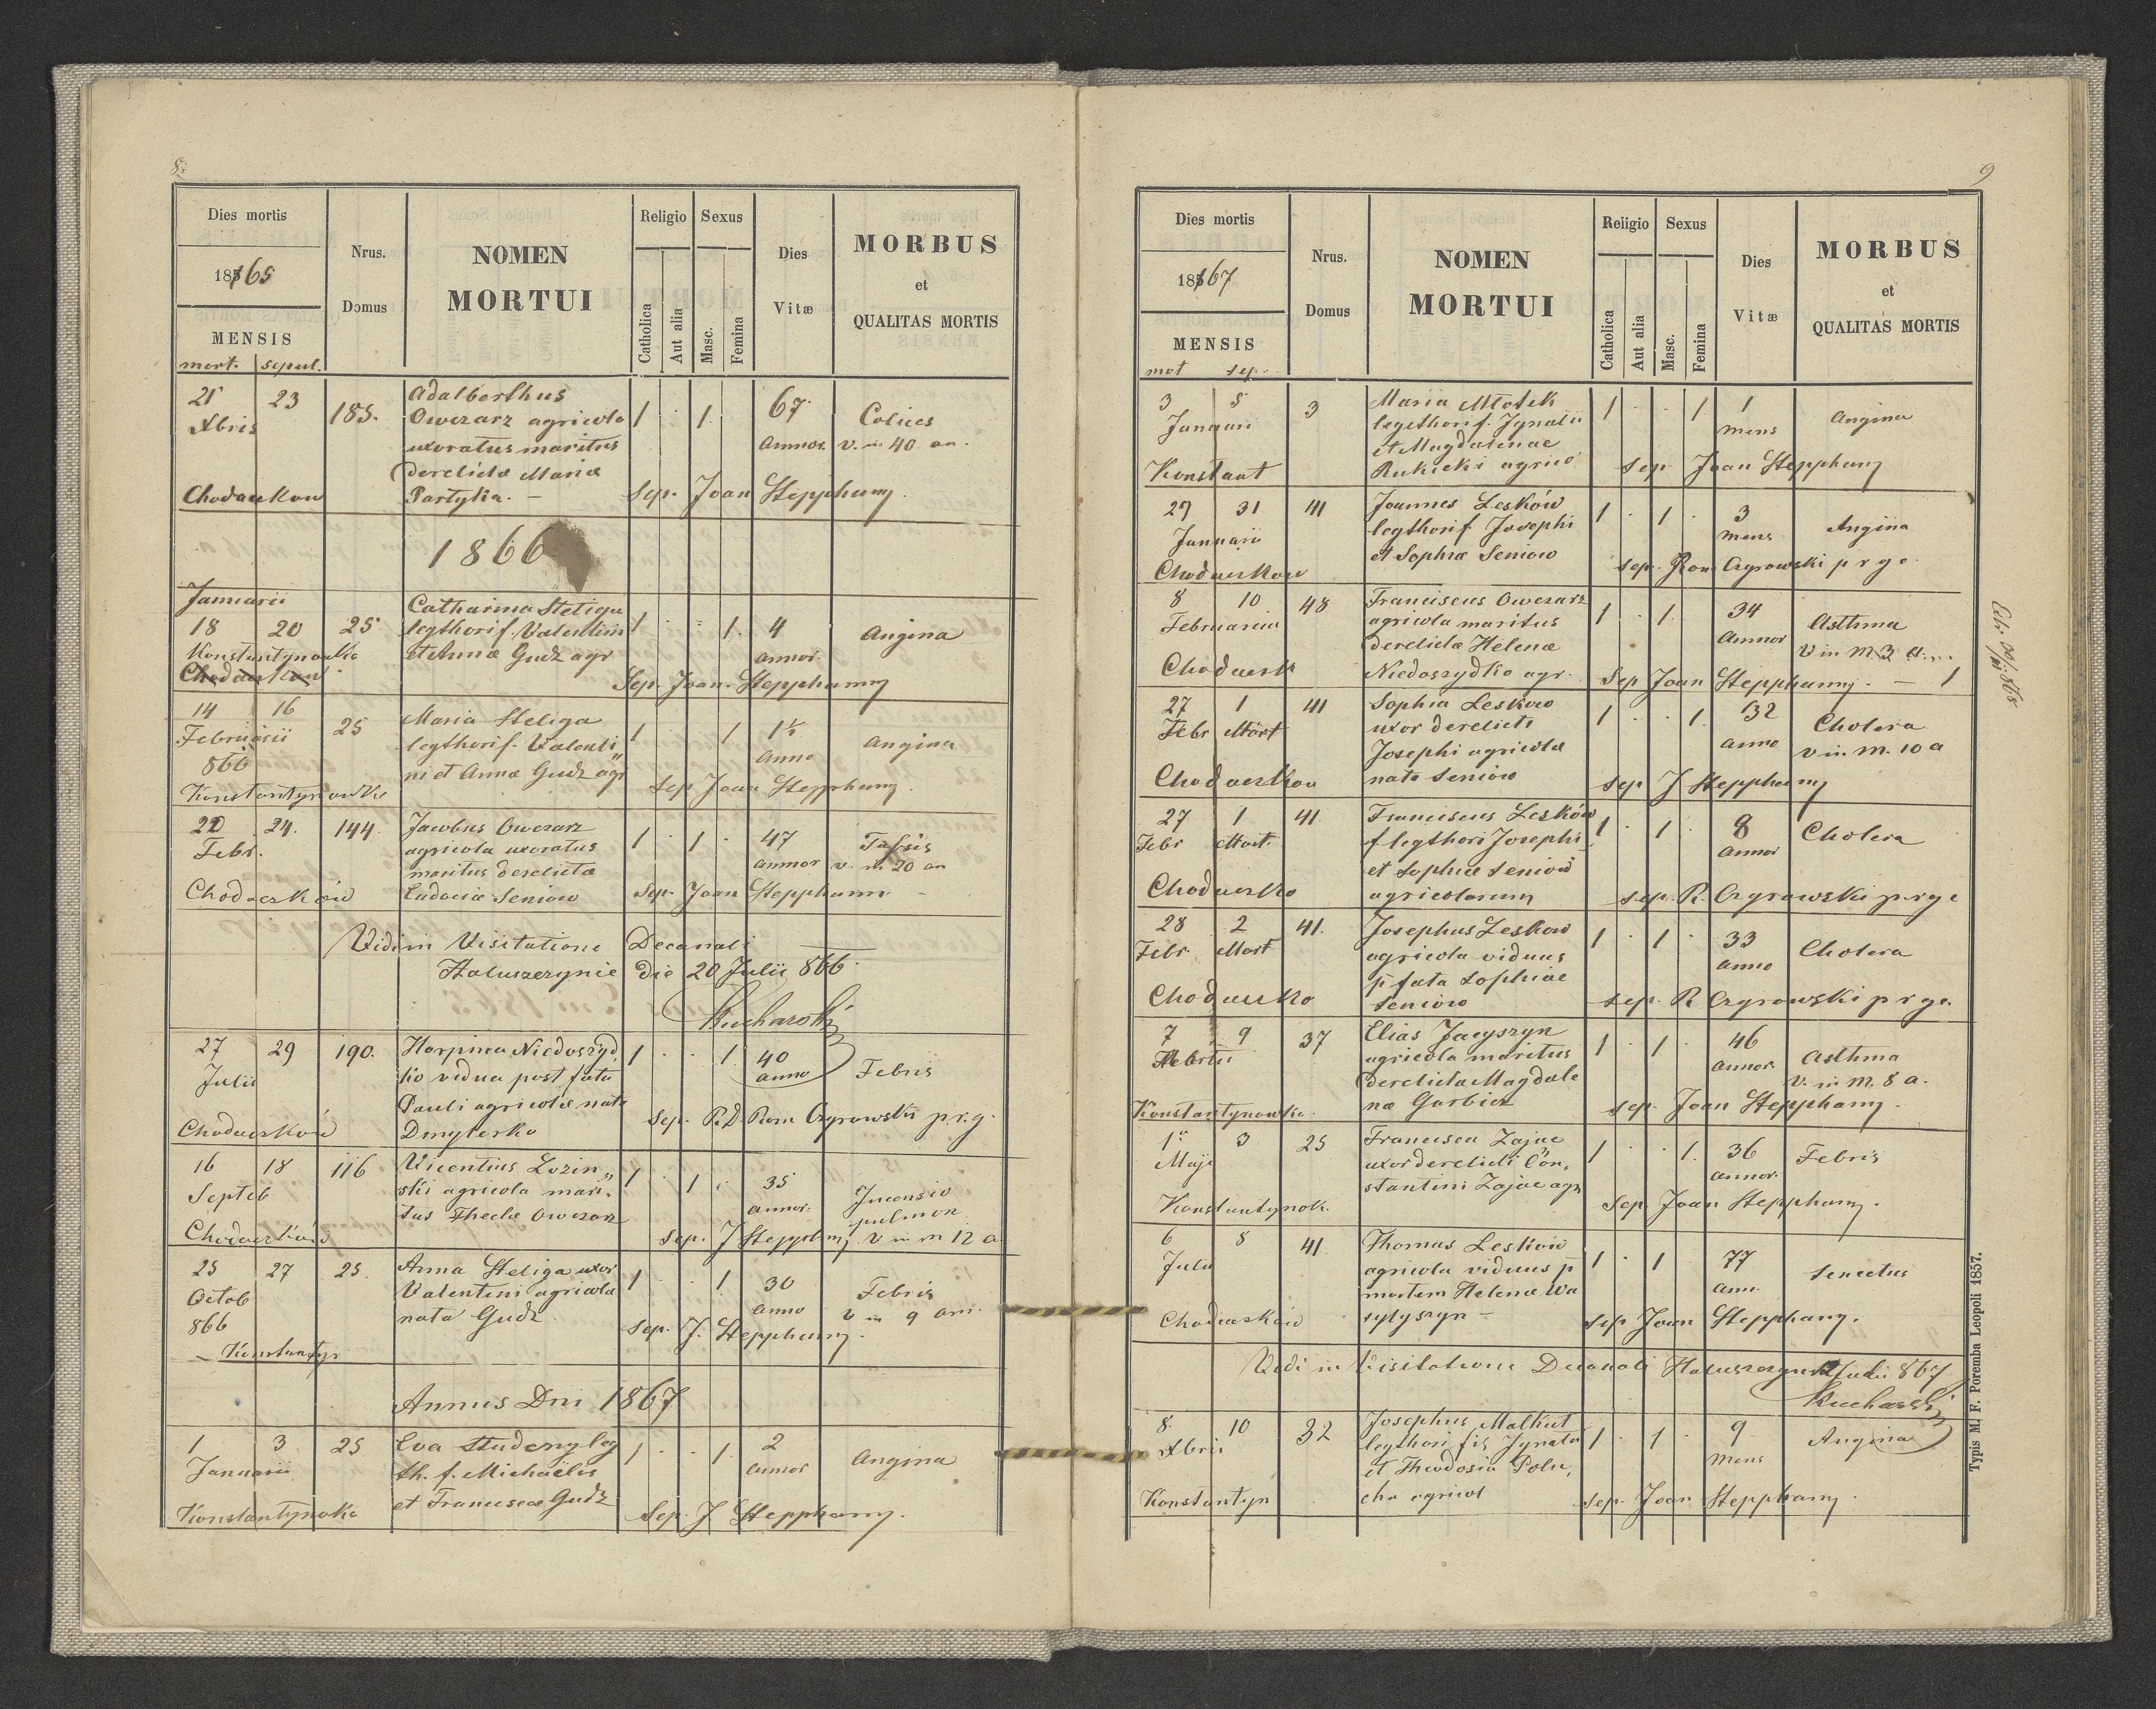 8.
Dies mortis
1865
MENSIS
mort. sepul.
Nrus. Domus
NOMEN
MORTUI
Religio
Catholica
Aut alia
Sexus
Masc.
Femina
Dies
Vitæ
MORBUS
et
QUALITAS MORTIS
21 23 185. Adalberthus
Xbris Owczarz agricola 1 . 1. 67 Colices
uxoratus maritus annor. v. in 40 an.
derelictæ Mariæ
Chodaczkow Partyka. — Sep. Joan Stepphany.
1866
Januarii
18 20 25 Catharina Steliga
legthori f. Valentini 1 . . 1. 4 Angina
Konstantynowka et Annæ Gudz agr annor.
Chodaczkow Sep. Joan. Stepphanny
14 16 25 Maria Steliga
Februarii legthori f. Valenti 1 1 1½ Angina
866 ni et Annæ Gudz agr anno
Konstantynowka Sep Joan Stepphany.
22 24. 144. Jacobus Owczarz
Febr. agricola uxoratus 1 . 1 . 47 Tussis
maritus derelictæ annor v. in 20 an
Chodaczków Eudociæ Seniow Sep. Joan Stepphann
Vidi in Visitatione Decanali
Haluszczynie die 20 Julii 866.
Kucharski
27 29 190. Harpina Niedoszyd
Julii ko vidua post fata 1 . . 1 40 Febris
Pauli agricolæ nata anno
Chodaczków Dmyterko Sep. R.D. Rom Ogrowski p.r.g.
16 18 116 Vicentius Lozin
Septeb ski agricola mari 1 . 1 . 35
tus Theclæ Owczarz annor. pulmon
Chodaczków sep. J Stepphny v in m 12 a
25 27 25. Anna Steliga uxor
Octob Valentini agricola 1 . . 1 30 Febris
866 nata Gudz anno v in 9 ann.
Konstantyn sep. J. Stepphany.
Annus Dni 1867
1 3 25 Eva Studeny leg
Januarii th. f. Michaëlis 1 . . 1. 2 Angina
et Franciscæ Gudz annor
Konstantynoka Sep. J Stepphany.
9
Dies mortis
1867
MENSIS
mot sep.
Nrus.
Domus
NOMEN
MORTUI
Religio
Catholica
Aut alia
Sexus
Masc.
Femina
Dies
Vitæ
MORBUS
et
QUALITAS MORTIS
3 5 3 Maria Młotek
Januari legthori f. Ignatii 1 . . 1 1 Angina
et Magdalenae mens
Konstant Rukicki agrico Sep Joan Stepphany
29 31 41 Joannes Lesków
Januarii legthori f. Josephi 1 . 1 . 3 Angina
et Sophiæ Seniow mens
Chodaczkow sep. Rom Ogrowski p r g c
8 10 48 Franciscus Owczarz
Februarii agricola maritus 1 . 1. 34 Asthma
derelictæ Helenæ annor v in m 3 a.
Chodaczk Niedoszydko agr. Sep Joan Stepphany. — 1
27 1 41 Sophia Leskow
Febr Mart uxor derelicti 1 . . 1. 32 Cholera
Josephi agricolæ anno v in m. 10 a
Chodaczkow nata Seniow sep J Stepphany
27 1 41. Franciscus Lesków
Febr Mart. f. legthori Josephi 1 . 1 . 8 Cholera
et Sophiæ Seniow annor
Chodaczko agricolarum sep. R. Ogrowski p.r.g.c
28 2 41. Josephus Leskow
Febr Mart agricola viduus 1 . 1 . 33 Cholera
p fata Sophiae anno
Chodaczko Seniow sep. R Ogrowski p r g c.
7 9 37 Elias Jacyszyn
agricola maritus 1 . 1 . 46 Asthma
derelictæ Magdale annor. v. in m. 8 a.
Konstantynowka. næ Garbicz sep. Joan Stepphany.
1 3 25 Francisca Zając
Maji uxor derelicti Con, 1 . . 1. 36 Febris
stantini Zając agr annor.
Konstantynok. Sep Joan Stepphany.
6 8 41. Thomas Lesków
Julii agricola viduus p 1 . 1 77 Senectus
mortem Helenæ Wa ann.
Chodaczków sylyszyn — sep Joan Stepphany.
Vidi in Visitatione Decanali Haluszczynie Julii 867
Kucharski
8. 10 32 Josephus Malkut
Xbris legthori fis Ignatii 1 . 1 . 9 Angina
et Theodosia Polu, mens
Konstantyn cha agricol sep. Joan Stepphany.
Typis M. F. Poremba Leopoli 1857.